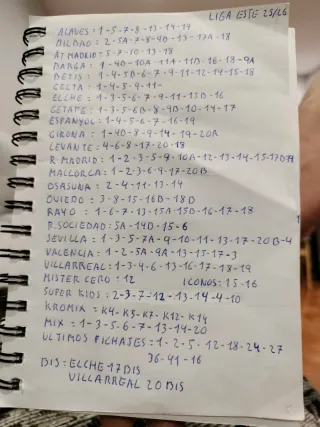 LIGA ESTE 25/26
ALAVES: 1-5-7-8-13-14-14
BILBAO: 2-5A-7-8-9D-13-17A-18
AT MADRID: 5-7-10-13-18
BARÇA: 1-4D-10A-11A-11B-16-18-9A
BETIS: 1-4-5B-6-7-9-11-12-14-15-18
CELTA: 1-4-5-9-11-
ELCHE: 1-3-5-6-7-9-11-15D-16
GETAFE: 1-3-5-6B-8-9D-10-14-17
ESPANYOL: 1-4-5-6-7-16-19
GIRONA: 1-4D-8-9-14-19-20A
LEVANTE: 4-6-8-17-20-18
R. MADRID: 1-2-3-5-9-10A-12-13-14-15-17D
MALLORCA: 1-2-3-6-9-17-20B
OSASUNA: 2-4-11-13-14
OVIEDO: 3-8-15-16B-18D
RAYO: 1-6-7-13-15A-15B-16-17-18
R. SOCIEDAD: 5A-14D-15-6
SEVILLA: 1-3-5-7A-9-10-11-13-17-20B-4
VALENCIA: 1-2-5A-9A-13-15-17-3
VILLARREAL: 1-3-4-6-13-16-17-18-19
MISTER CERO: 12 ICONOS: 15-16
SUPER KIDS: 2-3-7-12-13-14-4-10
KROMIX: K4-K5-K7-K12-K14
MIX: 1-3-5-6-7-13-14-20
ULTIMOS FICHAJES: 1-2-5-12-18-24-27
36-41-16
BIS: ELCHE 17 BIS
VILLARREAL 20 BIS